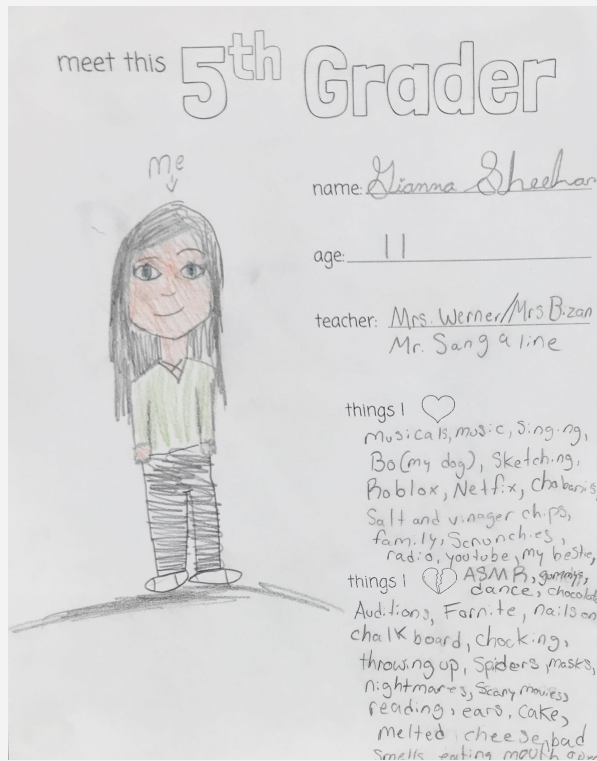 meet this 5th Grader
me
name: Gianna Sheehan
age: 11
teacher: Mrs. Werner/Mrs Bizan
Mr. Sangaline
things I
musicals, music, singing,
Bo (my dog), Sketching,
Roblox, Netfix, chobanis
Salt and vinager chips,
family, Scrunchies,
radio, youtube, my bestie,
things I ASMR, gummys,
dance, chocolate
Auditions, Fornite, nails on
chalk board, chocking,
throwing up, Spiders, masks,
nightmares, Scary movies,
reading, ears, cake,
melted cheese, bad
smells, eating mouth open